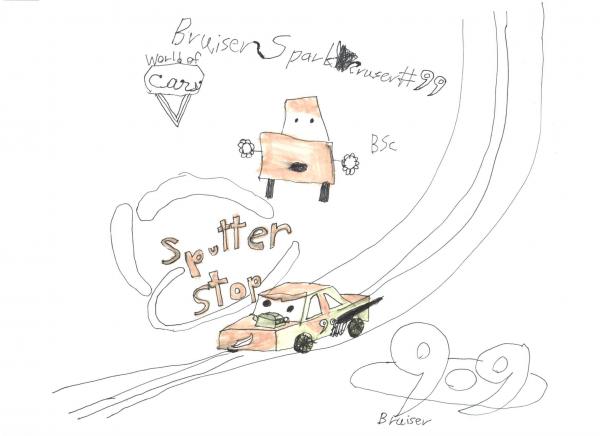 Bruiser Sparkcruser #99
World of
Cars
BSC
Sputter
Stop
99
9-9
Bruiser